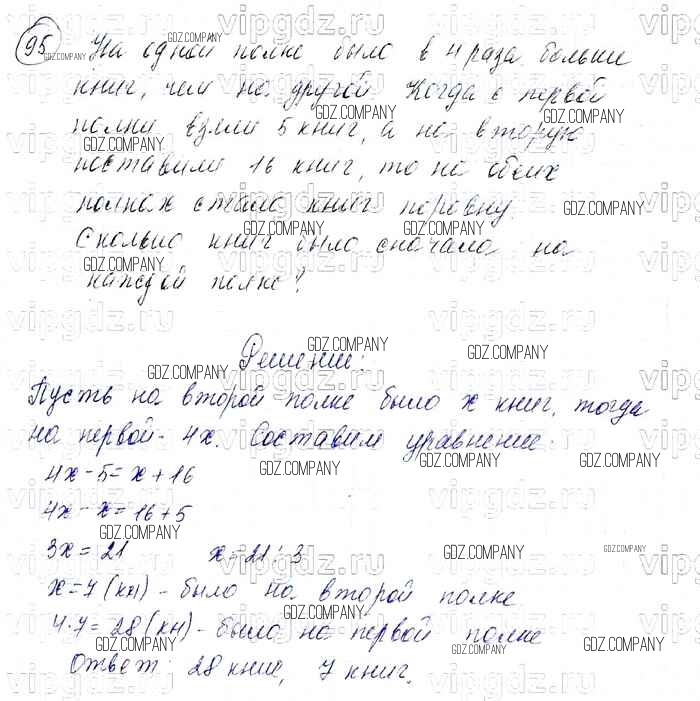 95 На одной полке было в 4 раза больше
книг, чем на другой. Когда с первой
полки взяли 5 книг, а на вторую
поставили 16 книг, то на обеих
полках стало книг поровну
Сколько книг было сначала на
каждой полке?
Решение:
Пусть на второй полке было x книг, тогда
на первой - 4x. Составим уравнение.
4x - 5 = x + 16
4x - x = 16 + 5
3x = 21 x = 21 : 3
x = 7 (кн) - было на второй полке
4·7 = 28 (кн) - было на первой полке
Ответ: 28 книг, 7 книг.
vipgdz.ru
GDZ.COMPANY